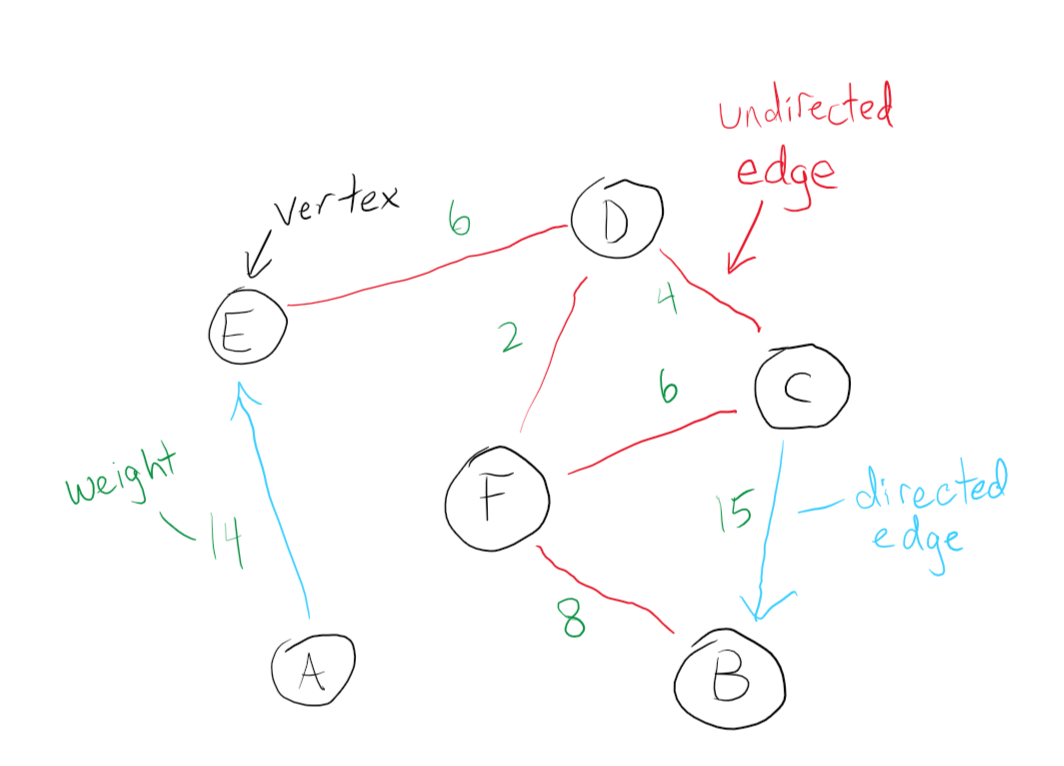 undirected
edge
vertex
6
D
E
4
2
6
C
weight
14
F
15
directed
edge
8
A
B